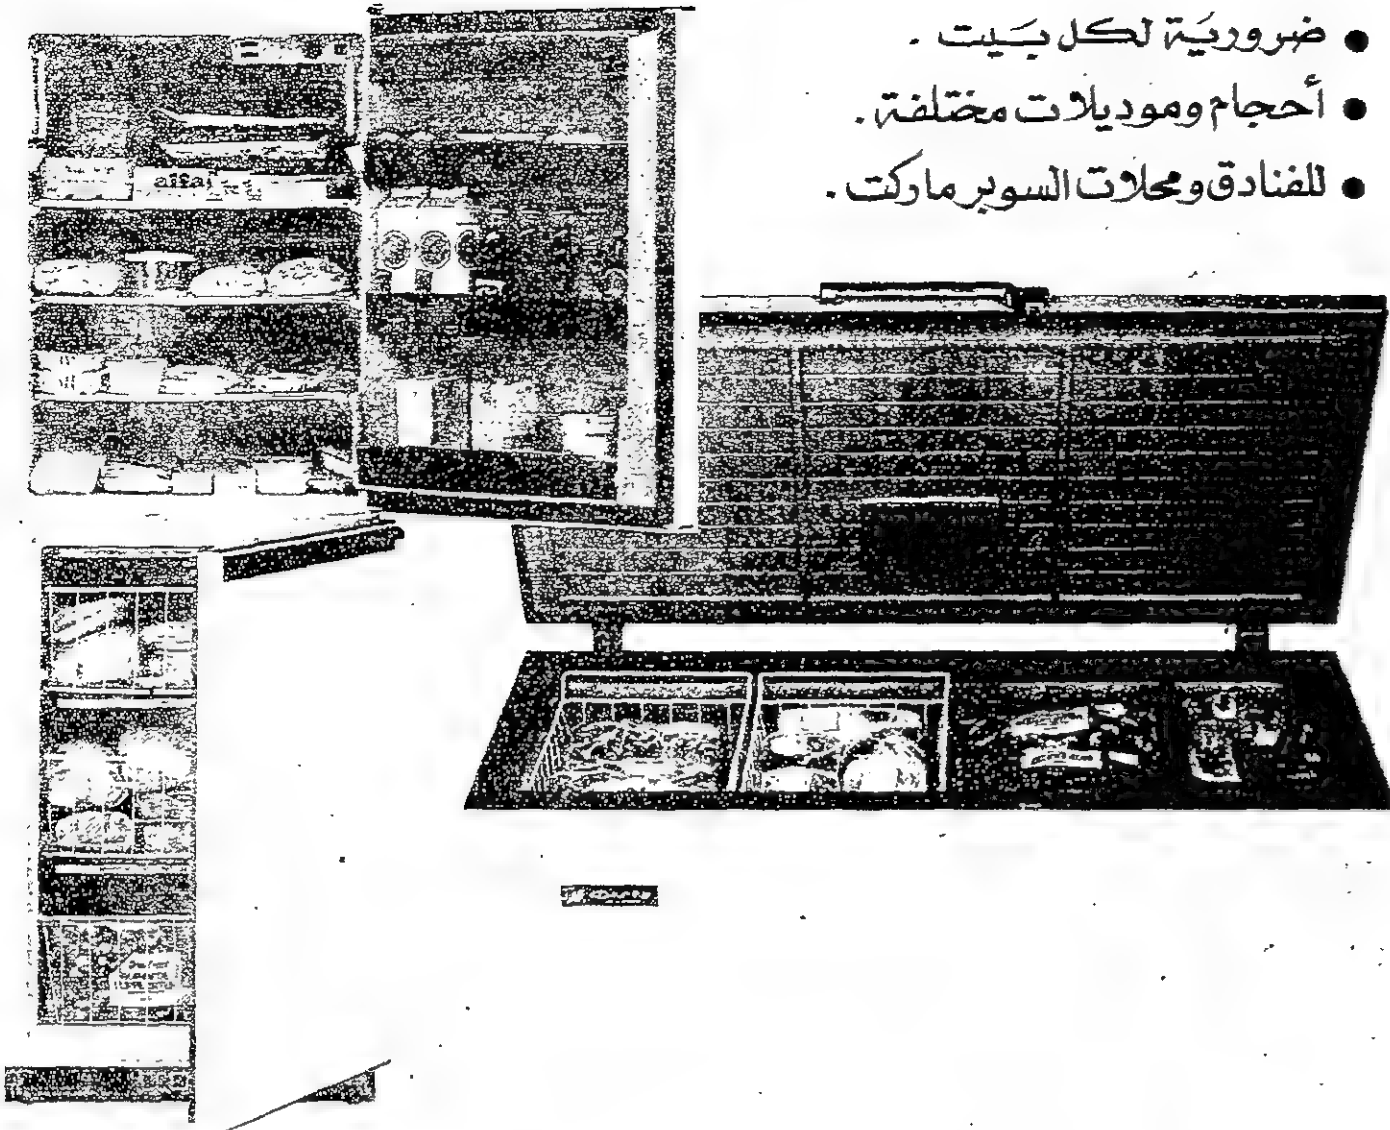 ● ضروريَة لكل بَيت .
● أحجام وموديلات مختلفة .
● للفنادق ومحلات السوبر ماركت .